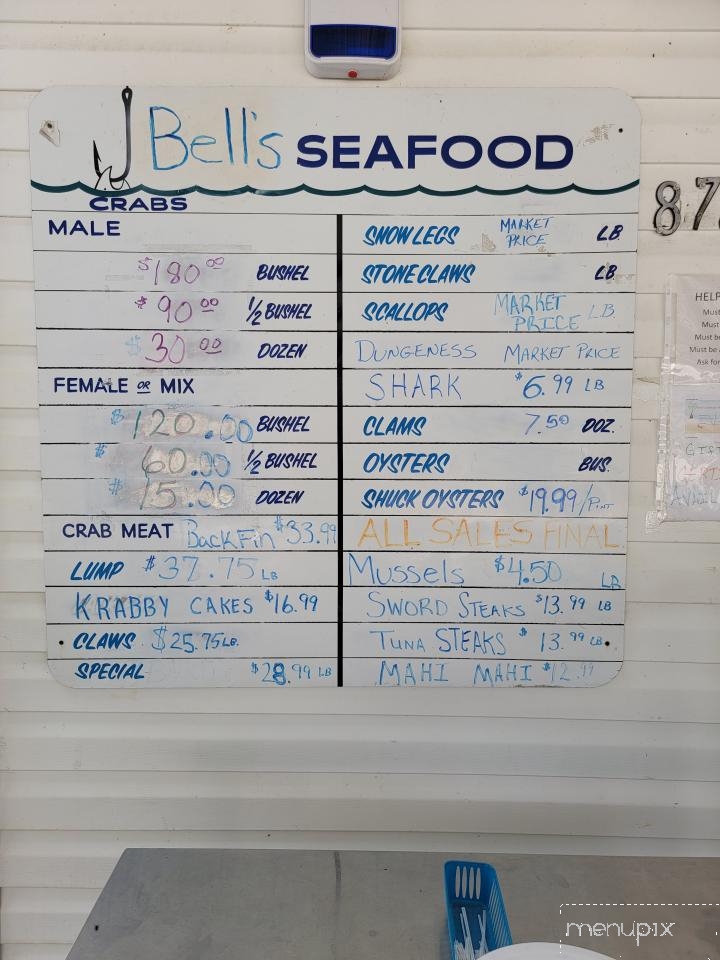 Bell's SEAFOOD
CRABS
MALE
$180.00 BUSHEL
$90.00 1/2 BUSHEL
$30.00 DOZEN
FEMALE OR MIX
$120.00 BUSHEL
$60.00 1/2 BUSHEL
$15.00 DOZEN
CRAB MEAT BackFin $33.99
LUMP $37.75 LB
KRABBY CAKES $16.99
CLAWS $25.75 LB.
SPECIAL $28.99 LB
SNOW LEGS MARKET PRICE LB
STONE CLAWS LB
SCALLOPS MARKET PRICE LB
DUNGENESS MARKET PRICE
SHARK $6.99 LB
CLAMS 7.50 DOZ.
OYSTERS BUS.
SHUCK OYSTERS $19.99/Pint
ALL SALES FINAL
Mussels $4.50 LB
SWORD STEAKS $13.99 LB
TUNA STEAKS $13.99 LB
MAHI MAHI $12.99
87
HELP
Must
Must
Must be
Must be a
Ask for
menupix